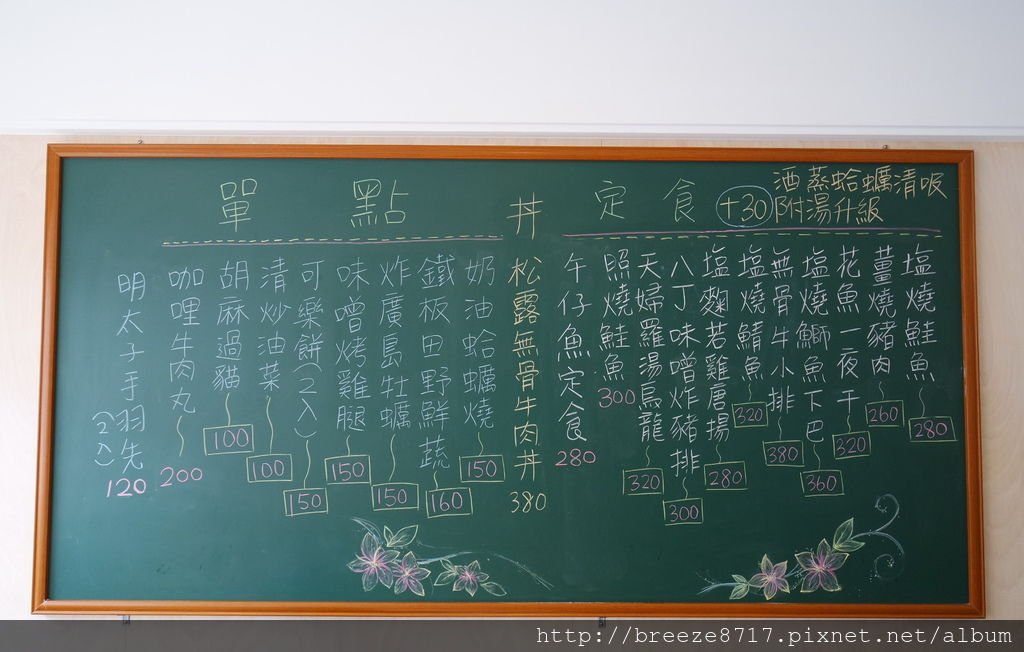 定食
+30
酒蒸蛤蠣清吸
附湯升級
塩燒鮭魚 280
薑燒豬肉 260
花魚一夜干 320
塩燒鰤魚下巴 360
無骨牛小排 380
塩燒鯖魚 320
塩麴若雞唐揚 280
八丁味噌炸豬排 300
天婦羅湯烏龍 320
照燒鮭魚 300
午仔魚定食 280
丼
松露無骨牛肉丼 380
單點
奶油蛤蠣燒 150
鐵板田野鮮蔬 160
炸廣島牡蠣 150
味噌烤雞腿 150
可樂餅(2入) 150
清炒油菜 100
胡麻過貓 100
咖哩牛肉丸 200
明太子手羽先(2入) 120
http://breeze8717.pixnet.net/album